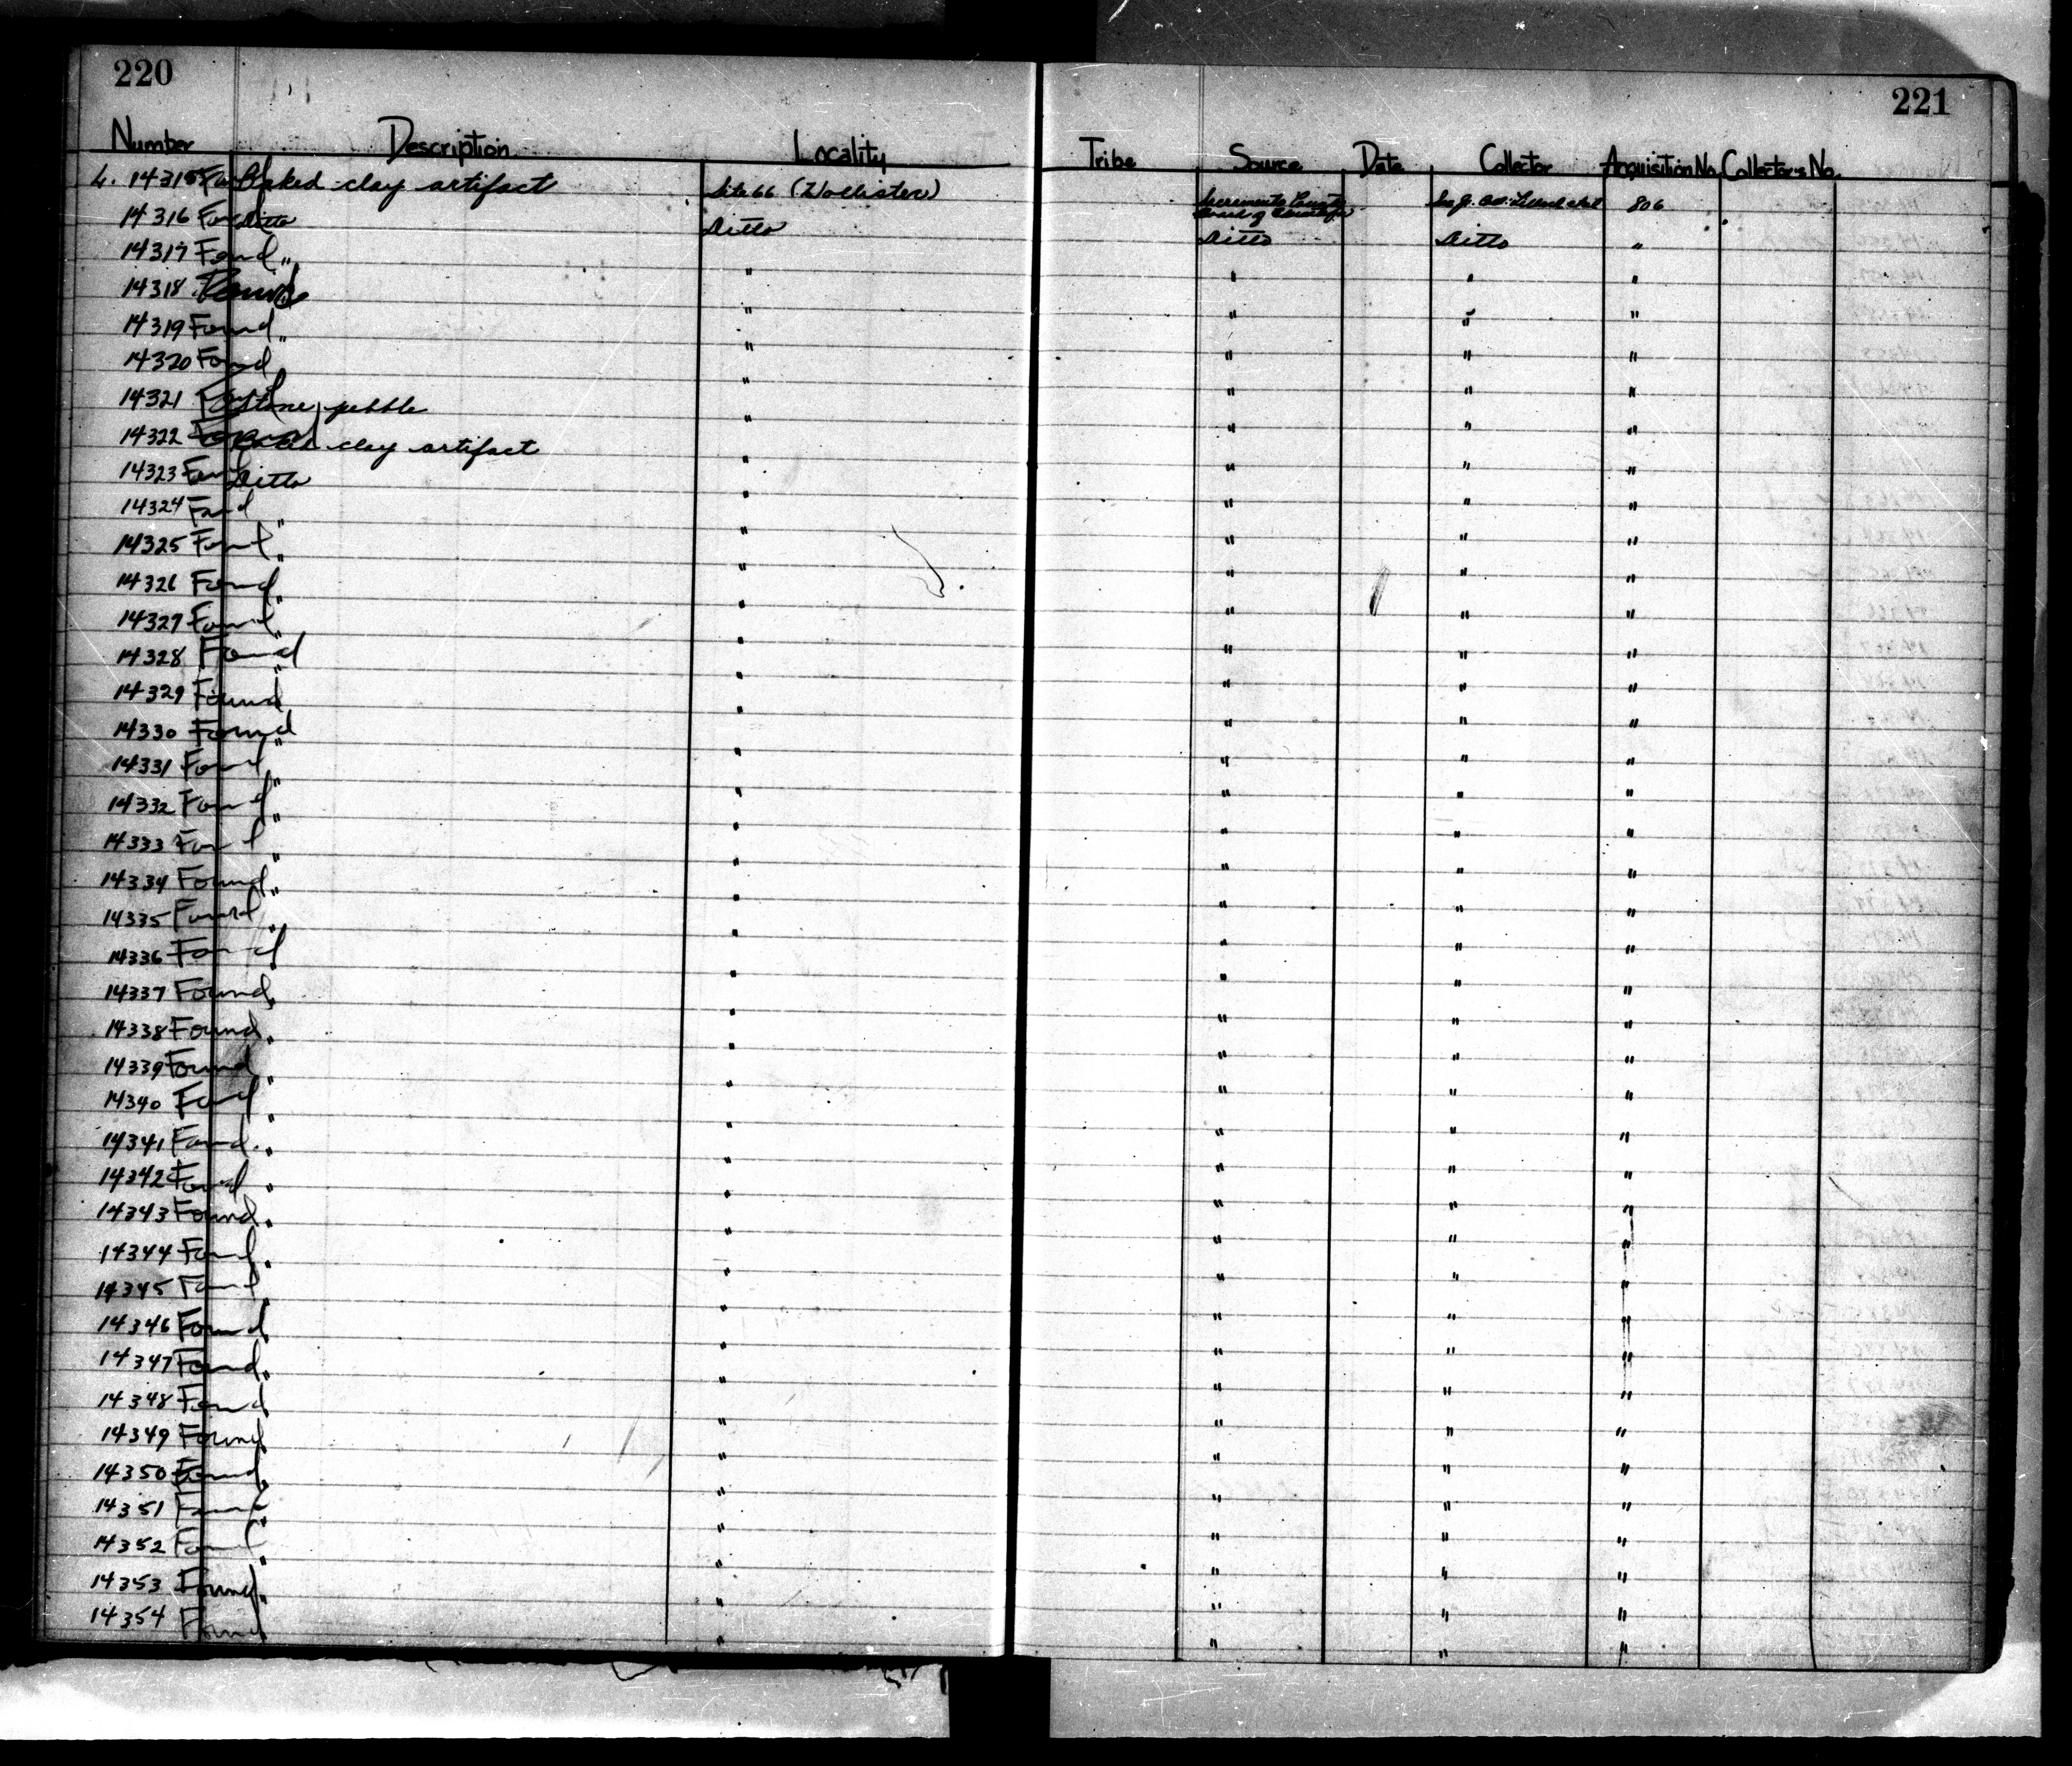 220
221
Number Description Locality Tribe Source Date Collector Acquisition No. Collector's No.
L. 14315 Found Baked clay artifact Site 66 (Hollister) Sacramento County 806
14316 Found Ditto Ditto Ditto Ditto "
14317 Found " " " " "
14318 Found " " " " "
14319 Found " " " " "
14320 Found " " " "
14321 Found Stone, pebble " " " "
14322 Found Baked clay artifact " " " "
14323 Found Ditto " " " "
14324 Found " " " " "
14325 Found " " " " "
14326 Found " " " " "
14327 Found " " " " "
14328 Found " " " " "
14329 Found " " " "
14330 Found " " " " "
14331 Found " " " " "
14332 Found " " " " "
14333 Found " " " " "
14334 Found " " " " "
14335 Found " " " " "
14336 Found " " " "
14337 Found " " " " "
14338 Found " " " " "
14339 Found " " " " "
14340 Found " " " " "
14341 Found " " " " "
14342 Found " " " " "
14343 Found " " " " "
14344 Found " " " " "
14345 Found " " " " "
14346 Found " " " " "
14347 Found " " " " "
14348 Found " " " "
14349 Found " " " " "
14350 Found " " " " "
14351 Found " " " " "
14352 Found " " " " "
14353 Found " " " " "
14354 Found " " " "